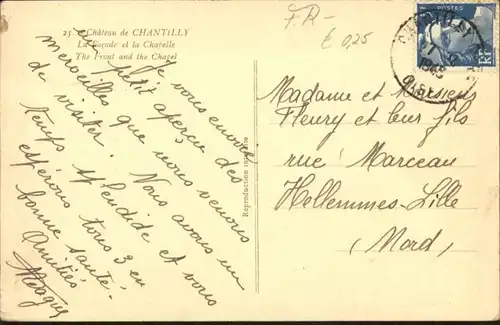 25 - Château de CHANTILLY
La Façade et la Chapelle
The Front and the Chapel
FR-
€ 0,25
POSTES
RF
CHANTILLY
Je vous envoie
un petit aperçu des
merveilles que nous venons
de visiter. Nous avons un
temps splendide et vous
espérons tous 3 en
bonne santé.
Amitiés
Reproduction interdite
Madame et Monsieur
Fleury et leur fils
rue Marceau
Hellemmes-Lille
(Nord)